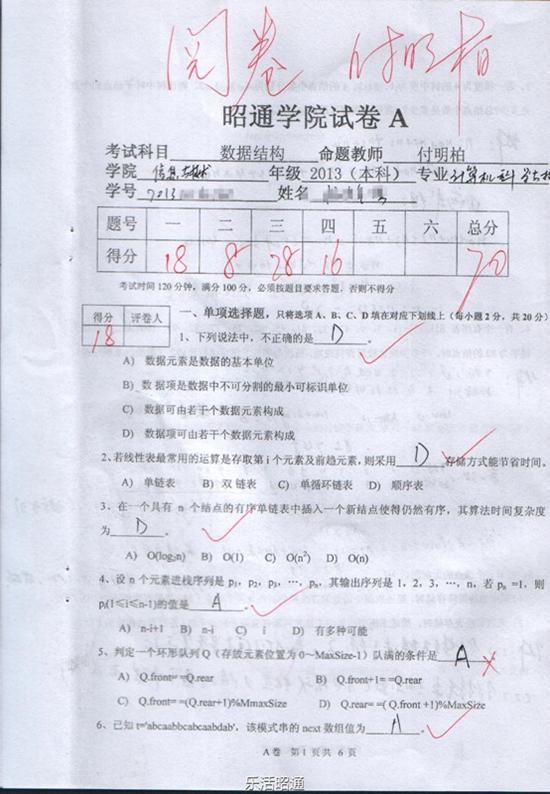 阅卷 付明柏
昭通学院试卷 A
考试科目 数据结构 命题教师 付明柏
学院 信息技术 年级 2013（本科） 专业 计算机科学技术
学号 2013 姓名
题号 一 二 三 四 五 六 总分
得分 18 8 28 16 70
考试时间 120 分钟，满分 100 分，必须按题目要求答题，否则不得分
得分 评卷人
18
一、单项选择题，只将选项 A、B、C、D 填在对应下划线上（每小题 2 分，共 20 分）
1、下列说法中，不正确的是 D 。
A) 数据元素是数据的基本单位
B) 数据项是数据中不可分割的最小可标识单位
C) 数据可由若干个数据元素构成
D) 数据项可由若干个数据元素构成
2、若线性表最常用的运算是存取第 i 个元素及前趋元素，则采用 D 存储方式能节省时间。
A) 单链表 B) 双链表 C) 单循环链表 D) 顺序表
3、在一个具有 n 个结点的有序单链表中插入一个新结点使得仍然有序，其算法时间复杂度
为 D 。
A) O(log₂n) B) O(1) C) O(n²) D) O(n)
4、设 n 个元素进栈序列是 p₁，p₂，p₃，…，pₙ，其输出序列是 1，2，3，…，n，若 pₙ =1，则
pᵢ(1≤i≤n-1)的值是 A 。
A) n-i+1 B) n-i C) i D) 有多种可能
5、判定一个环形队列 Q（存放元素位置为 0～MaxSize-1）队满的条件是 A
A) Q.front= =Q.rear B) Q.front+1= =Q.rear
C) Q.front= =(Q.rear+1)%MmaxSize D) Q.rear= =( Q.front +1)%MaxSize
6、已知 t='abcaabbcabcaabdab'，该模式串的 next 数组值为 A 。
A 卷 第 1 页 共 6 页
乐活昭通